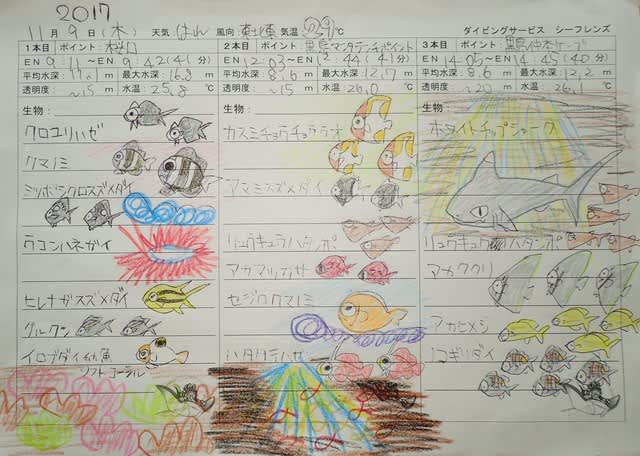 2017
11月9日(木) 天気 はれ 風向 東北東 気温 29℃ ダイビングサービス シーフレンズ
1本目 ポイント: 桜口
EN 9:11~EN 9:42(41分)
平均水深 m 最大水深 16.8 m
透明度 ~15 m 水温 25.8 ℃
生物:
クロユリハゼ
クマノミ
ミツボシクロスズメダイ
ウコンハネガイ
ヒレナガスズメダイ
グルクン
イロブダイ幼魚
ソフトコーラル
2本目 ポイント: 黒島マンタテンチポイント
EN 12:03~EN 12:44(41分)
平均水深 8.6 m 最大水深 12.7 m
透明度 ~15 m 水温 26.0 ℃
生物:
カスミチョウチョウウオ
アマミスズメダイ
リュウキュウハタンポ
アカマツカサ
セジロクマノミ
ハタタテハゼ
3本目 ポイント: 黒島仲本ケーブ
EN 14:05~EN 14:45(40分)
平均水深 8.6 m 最大水深 12.2 m
透明度 ~20 m 水温 26.1 ℃
生物:
ホワイトチップシャーク
リュウキュウハタンポ
アカククリ
アカヒメジ
ノコギリダイ